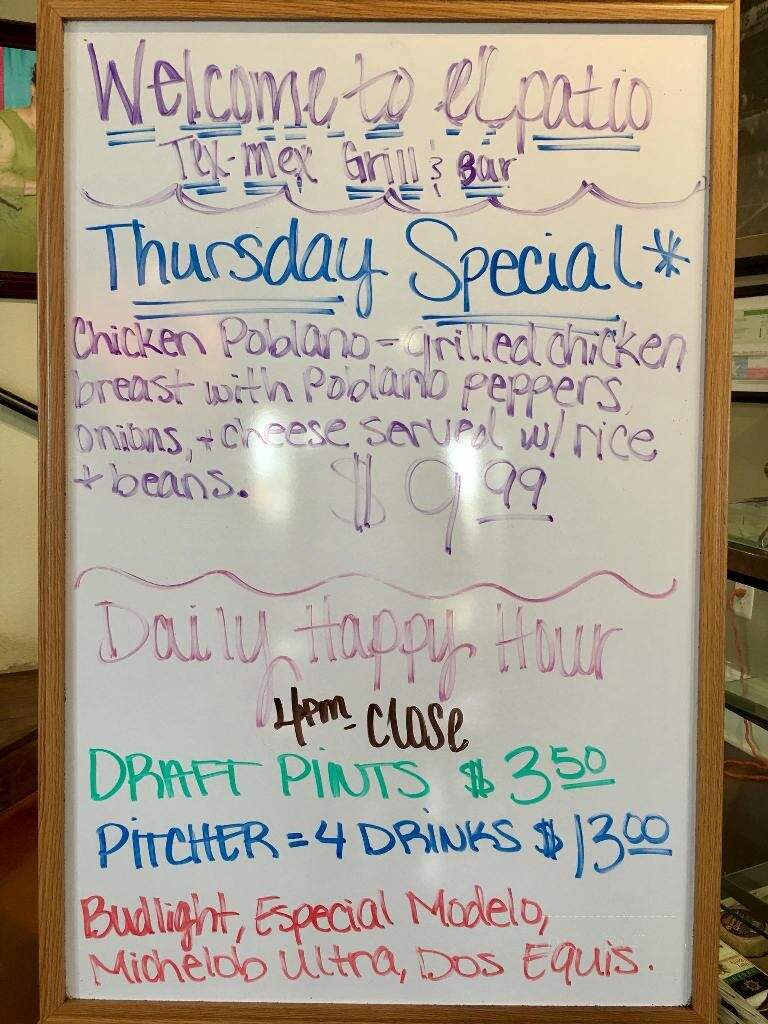 Welcome to el patio
Tex-Mex Grill & Bar
Thursday Special*
Chicken Poblano - grilled chicken
breast with Poblano peppers,
onions, + cheese served w/ rice
+ beans. $9.99
Daily Happy Hour
4pm - close
DRAFT PINTS $3.50
PITCHER = 4 DRINKS $13.00
Budlight, Especial Modelo,
Michelob Ultra, Dos Equis.